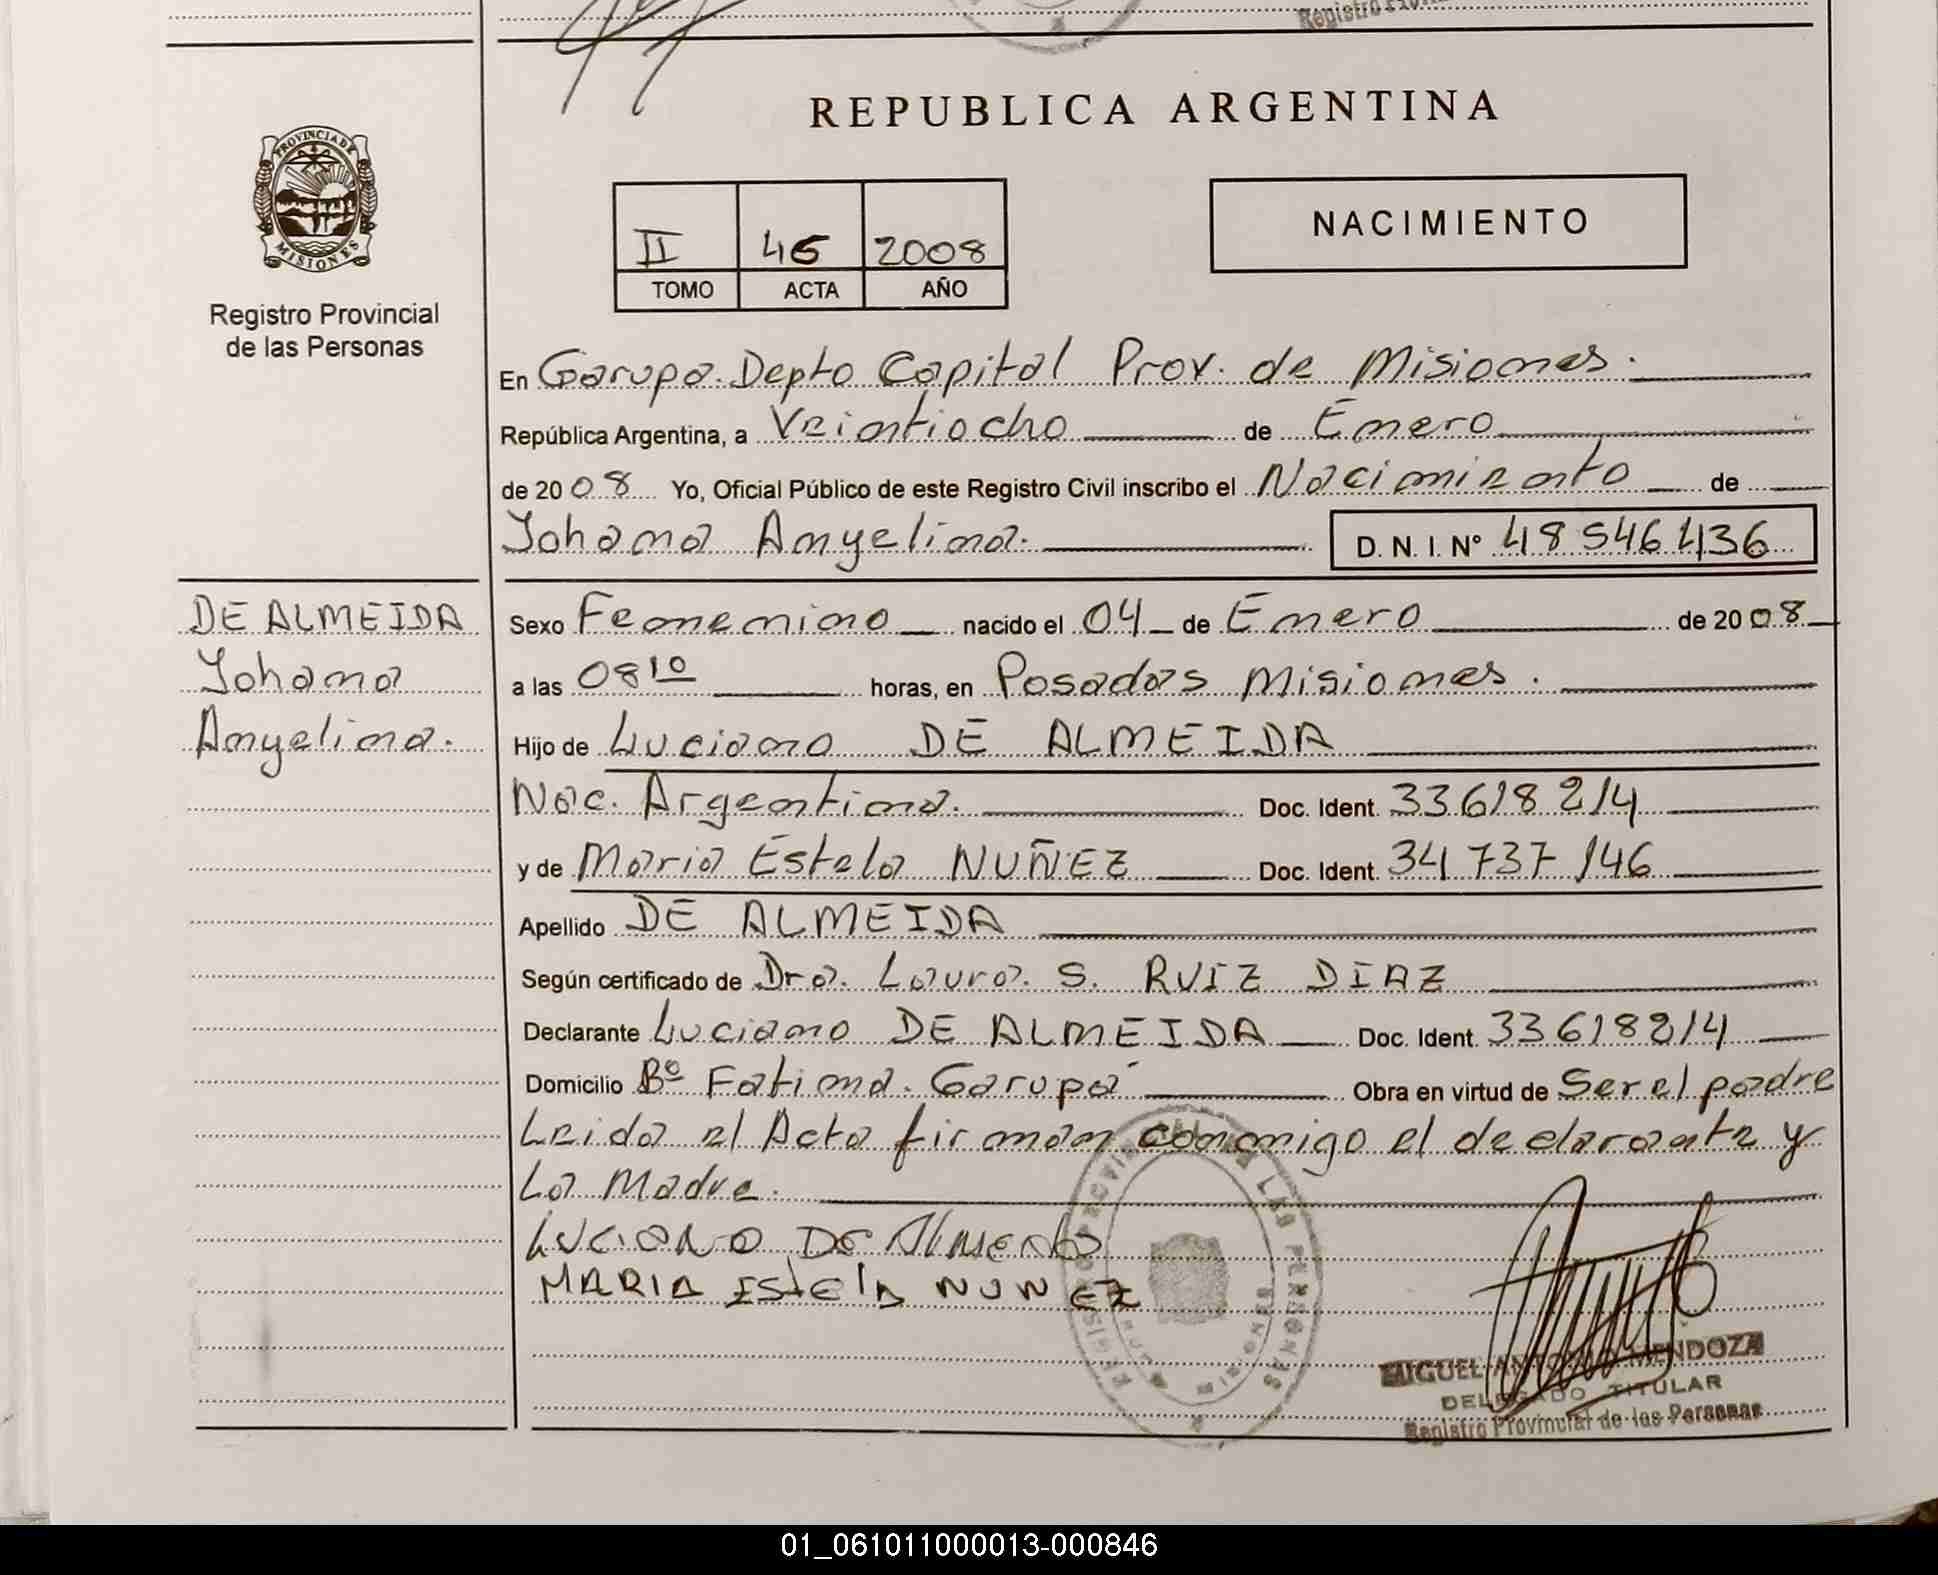 Registro
REPUBLICA ARGENTINA
PROVINCIA DE MISIONES
Registro Provincial
de las Personas
II 46 2008
TOMO ACTA AÑO
NACIMIENTO
En Garupa. Depto Capital Prov. de Misiones.
República Argentina, a Veintiocho de Enero
de 2008 Yo, Oficial Público de este Registro Civil inscribo el Nacimiento de
Yohana Anyelina. D. N. I. Nº 48546436
DE ALMEIDA
Yohana
Anyelina.
Sexo Femenino nacido el 04 de Enero de 2008
a las 08 10 horas, en Posadas Misiones.
Hijo de Luciano DE ALMEIDA
Nac. Argentina. Doc. Ident. 33618214
y de Maria Estela NUÑEZ Doc. Ident. 34737146
Apellido DE ALMEIDA
Según certificado de Dra. Laura. S. RUIZ DIAZ
Declarante Luciano DE ALMEIDA Doc. Ident. 33618214
Domicilio Bº Fatima. Garupá Obra en virtud de Ser el padre
Leida el Acta firman conmigo el declarante y
La Madre.
LUCIANO De Almeida
MARIA EStElA NUNEZ
REGISTRO PROVINCIAL DE LAS PERSONAS
MIGUEL ANTONIO MENDOZA
DELEGADO TITULAR
Registro Provincial de las Personas
01_061011000013-000846